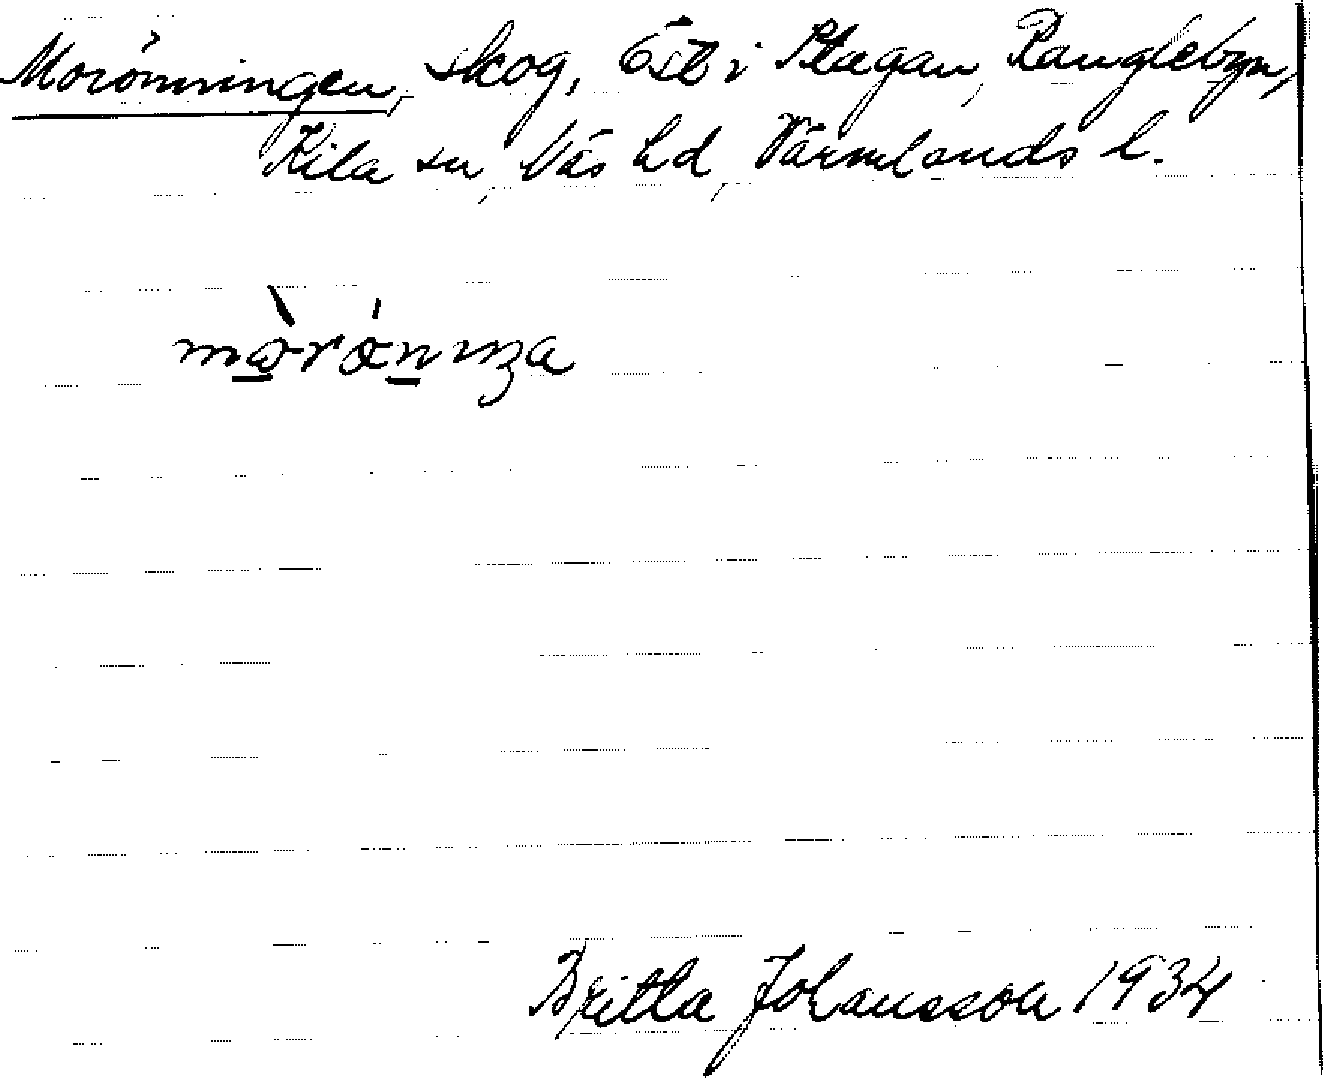 Morönningen, skog, Öst i Skagan, Ranglebyn,
Kila sn, Näs hd, Värmlands l.
Britta Johansson 1934